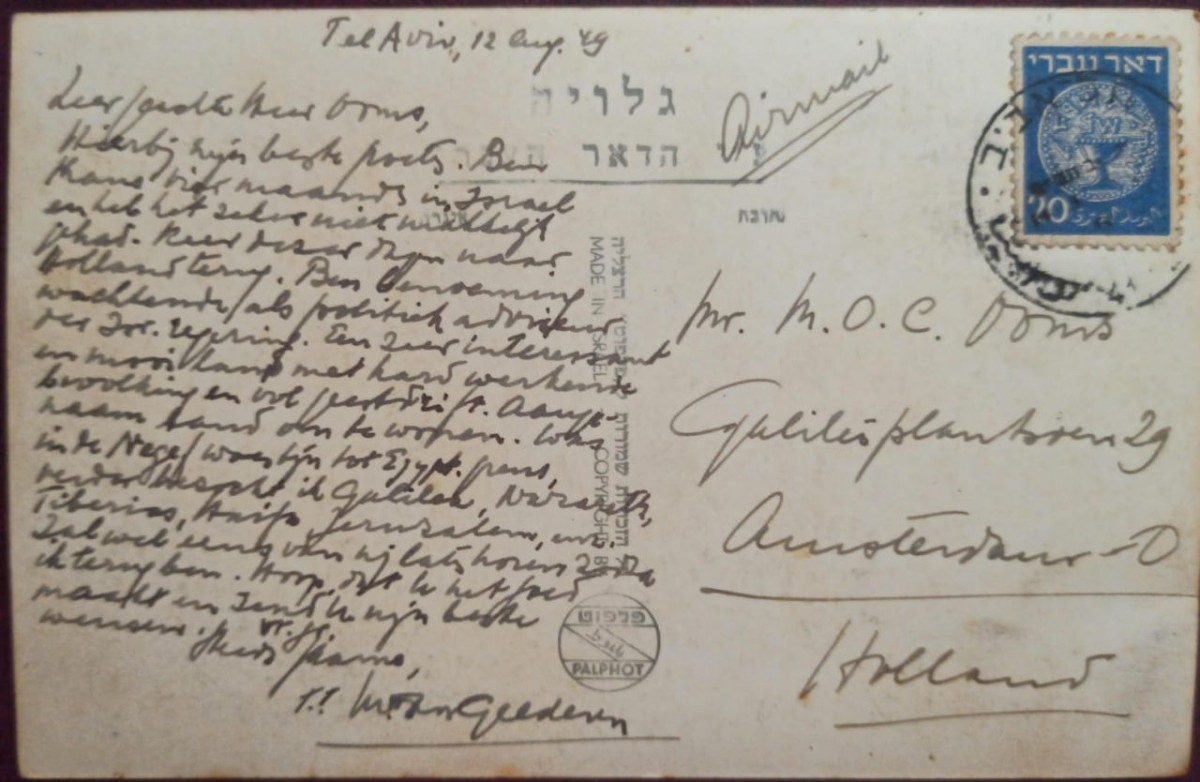 Tel Aviv, 12 Aug. '49
Zeer geachte Heer Ooms,
Hierbij mijn beste groets. Ben
thans vier maanden in Israel
en heb het zeker niet
gehad. Keer dezer dagen naar
Holland terug. Ben benoeming
wachtende als politiek adviseur
der Isr. regering. Een zeer interessant
en mooi land met hard werkende
bevolking en vol geestdrift. Aange-
naam land om te wonen. Was
in de Negev woestijn tot Egypt. grens,
verder bezocht ik Galilea, Nazareth,
Tiberias, Haifa, Jeruzalem, enz.
Zal wel eens van mij laten horen zodra
ik terug ben. Hoop, dat U het goed
maakt en zend U mijn beste
wensen.
vr. gr.
Airmail
גלויה
הדאר
כתובת
דאר עברי
20
MADE IN ISRAEL
COPYRIGHT BY
פלפוט
PALPHOT
Mr. M. O. C. Ooms
Galileïplantsoen 29
Amsterdam-O
Holland